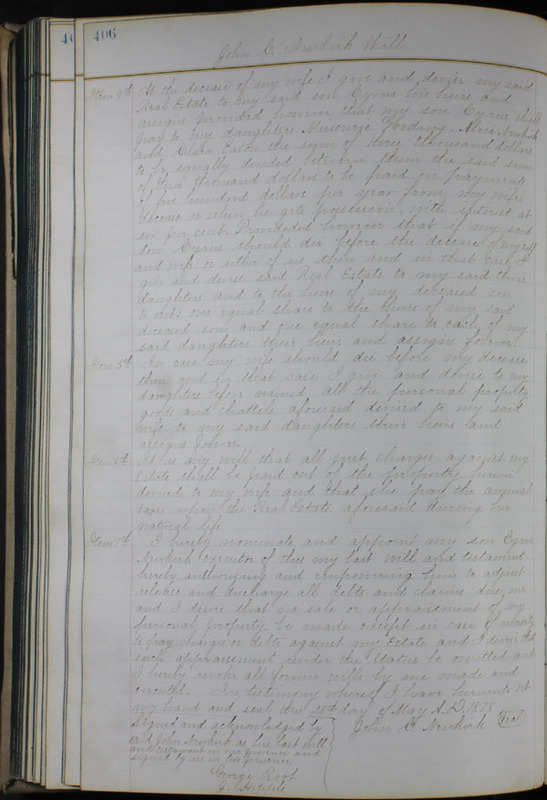 406
John C. Newkirk Will
Item 4th At the decease of my wife I give and devise my said
Real Estate to my said son Cyrus his heirs and
assigns provided however that my son Cyrus shall
pay to my daughters Alice Newkirk
and Clara Eaton the sum of three thousand dollars
to be equally divided between them the said sum
of three thousand dollars to be paid in payments
of five hundred dollars per year from my wife
decease or when he gets possession, with interest at
six per cent. Provided however that if my said
son Cyrus should die before the decease of myself
and wife or either of us then and in that case I
give and devise said Real Estate to my said three
daughters and to the heirs of my deceased son
to wit: one equal share to the heirs of my said
deceased son and one equal share to each of my
said daughters their heirs and assigns forever.
Item 5th In case my wife should die before my decease
then and in that case I give and devise to my
daughters before named all the personal property
goods and chattels aforesaid devised to my said
wife to my said daughters their heirs and
assigns forever
Item 6th It is my will that all just charges against my
Estate shall be paid out of the property herein
devised to my wife and that she pay the annual
taxes upon the Real Estate aforesaid during her
natural life
Item 7th I hereby nominate and appoint my son Cyrus
Newkirk executor of this my last will and testament
hereby authorizing and empowering him to adjust
release and discharge all debts and claims due me
and I desire that no sale or appraisement of my
personal property be made except in case of necessity
to pay charges or debts against my Estate and I desire that
such appraisement under the Statue be omitted and
I hereby revoke all former wills by me made and
executed. In testimony whereof I have hereunto set
my hand and seal this 28th day of May A.D. 1878
Signed and acknowledged by John C. Newkirk Seal
said John Newkirk as his last will
and testament in our presence and
signed by us in his presence
George Root
J. Hipple